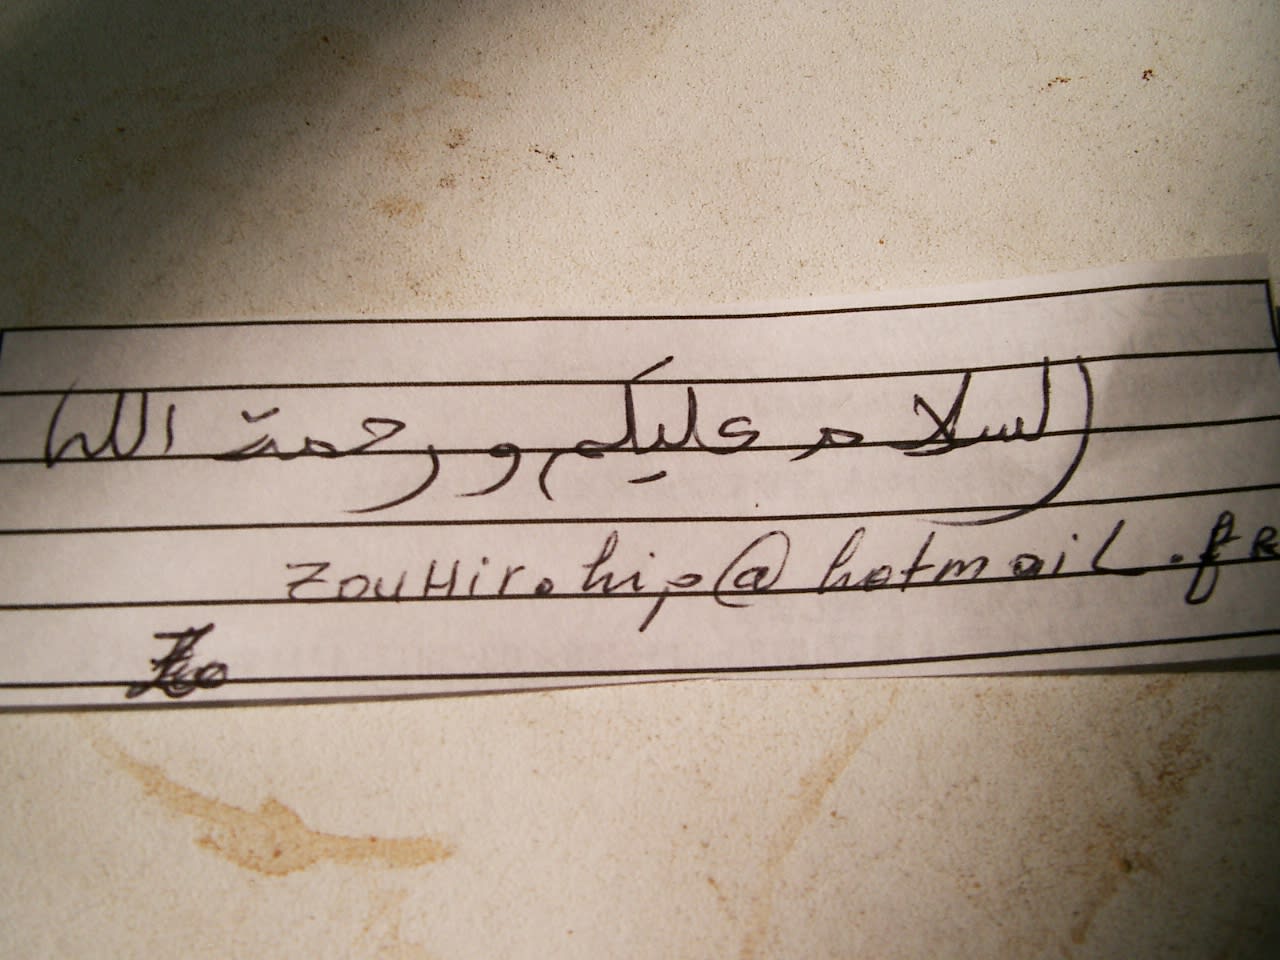 السلام عليكم ورحمة الله
zouHir.hip@hotmail.fR